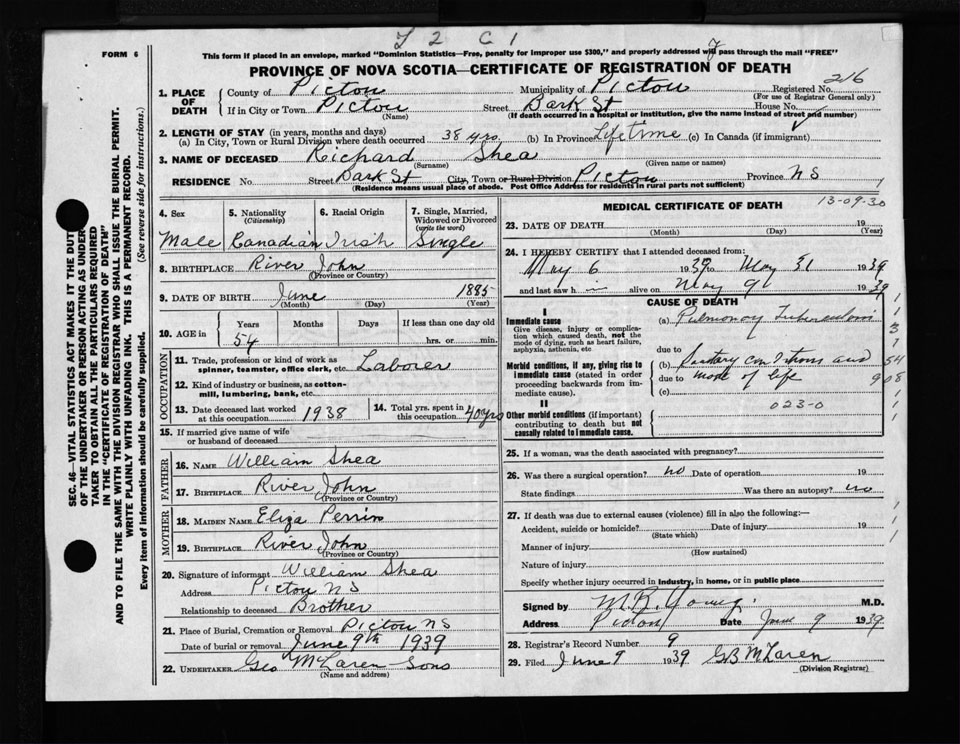 T 2 C 1
FORM 6
This form if placed in an envelope, marked "Dominion Statistics—Free, penalty for improper use $300," and properly addressed will pass through the mail "FREE"
PROVINCE OF NOVA SCOTIA—CERTIFICATE OF REGISTRATION OF DEATH
216
1. PLACE OF DEATH
County of Pictou Municipality of Pictou Registered No.
(For use of Registrar General only)
If in City or Town Pictou Street Bark St House No.
(Name) (If death occurred in a hospital or institution, give the name instead of street and number)
2. LENGTH OF STAY (in years, months and days)
(a) In City, Town or Rural Division where death occurred 38 yrs. (b) In Province Lifetime (c) In Canada (if immigrant)
3. NAME OF DECEASED Richard Shea
(Surname) (Given name or names)
RESIDENCE No. Street Bark St City, Town or Rural Division Pictou Province NS
(Residence means usual place of abode. Post Office Address for residents in rural parts not sufficient)
4. Sex Male
5. Nationality (Citizenship) Canadian
6. Racial Origin Irish
7. Single, Married, Widowed or Divorced (write the word) Single
8. BIRTHPLACE River John
(Province or Country)
9. DATE OF BIRTH June 1885
(Month) (Day) (Year)
10. AGE in Years Months Days If less than one day old
54 hrs. or min.
OCCUPATION
11. Trade, profession or kind of work as spinner, teamster, office clerk, etc. Laborer
12. Kind of industry or business, as cotton-mill, lumbering, bank, etc.
13. Date deceased last worked at this occupation 1938
14. Total yrs. spent in this occupation 40 yrs
15. If married give name of wife or husband of deceased
FATHER
16. NAME William Shea
17. BIRTHPLACE River John
(Province or Country)
MOTHER
18. MAIDEN NAME Eliza Perrin
19. BIRTHPLACE River John
(Province or Country)
20. Signature of informant William Shea
Address Pictou NS
Relationship to deceased Brother
21. Place of Burial, Cremation or Removal Pictou NS
Date of burial or removal June 9th 1939
22. UNDERTAKER Geo McLaren Sons
(Name and address)
MEDICAL CERTIFICATE OF DEATH
13-09-30
23. DATE OF DEATH 19
(Month) (Day) (Year)
24. I HEREBY CERTIFY that I attended deceased from:
May 6 1939 to May 31 1939
and last saw h alive on May 1939
CAUSE OF DEATH
I
Immediate cause
Give disease, injury or complication which caused death, not the mode of dying, such as heart failure, asphyxia, asthenia, etc
(a) Pulmonary Tuberculosis
due to
Morbid conditions, if any, giving rise to immediate cause (stated in order proceeding backwards from immediate cause).
(b) Sanitary conditions and
due to mode of life
(c)
023-0
II
Other morbid conditions (if important) contributing to death but not causally related to immediate cause.
25. If a woman, was the death associated with pregnancy?
26. Was there a surgical operation? no Date of operation 19
State findings Was there an autopsy? no
27. If death was due to external causes (violence) fill in also the following:—
Accident, suicide or homicide? Date of injury 19
(State which)
Manner of injury
(How sustained)
Nature of injury
Specify whether injury occurred in industry, in home, or in public place
Signed by M.R. Young M.D.
Address Pictou Date June 9 1939
28. Registrar's Record Number 9
29. Filed June 9 1939 GB McLaren
(Division Registrar)
SEC. 46—VITAL STATISTICS ACT MAKES IT THE DUTY
OF THE UNDERTAKER OR PERSON ACTING AS UNDERTAKER TO OBTAIN ALL THE PARTICULARS REQUIRED
IN THE "CERTIFICATE OF REGISTRATION OF DEATH"
AND TO FILE THE SAME WITH THE DIVISION REGISTRAR WHO SHALL ISSUE THE BURIAL PERMIT.
WRITE PLAINLY WITH UNFADING INK. THIS IS A PERMANENT RECORD.
Every item of information should be carefully supplied. (See reverse side for instructions.)